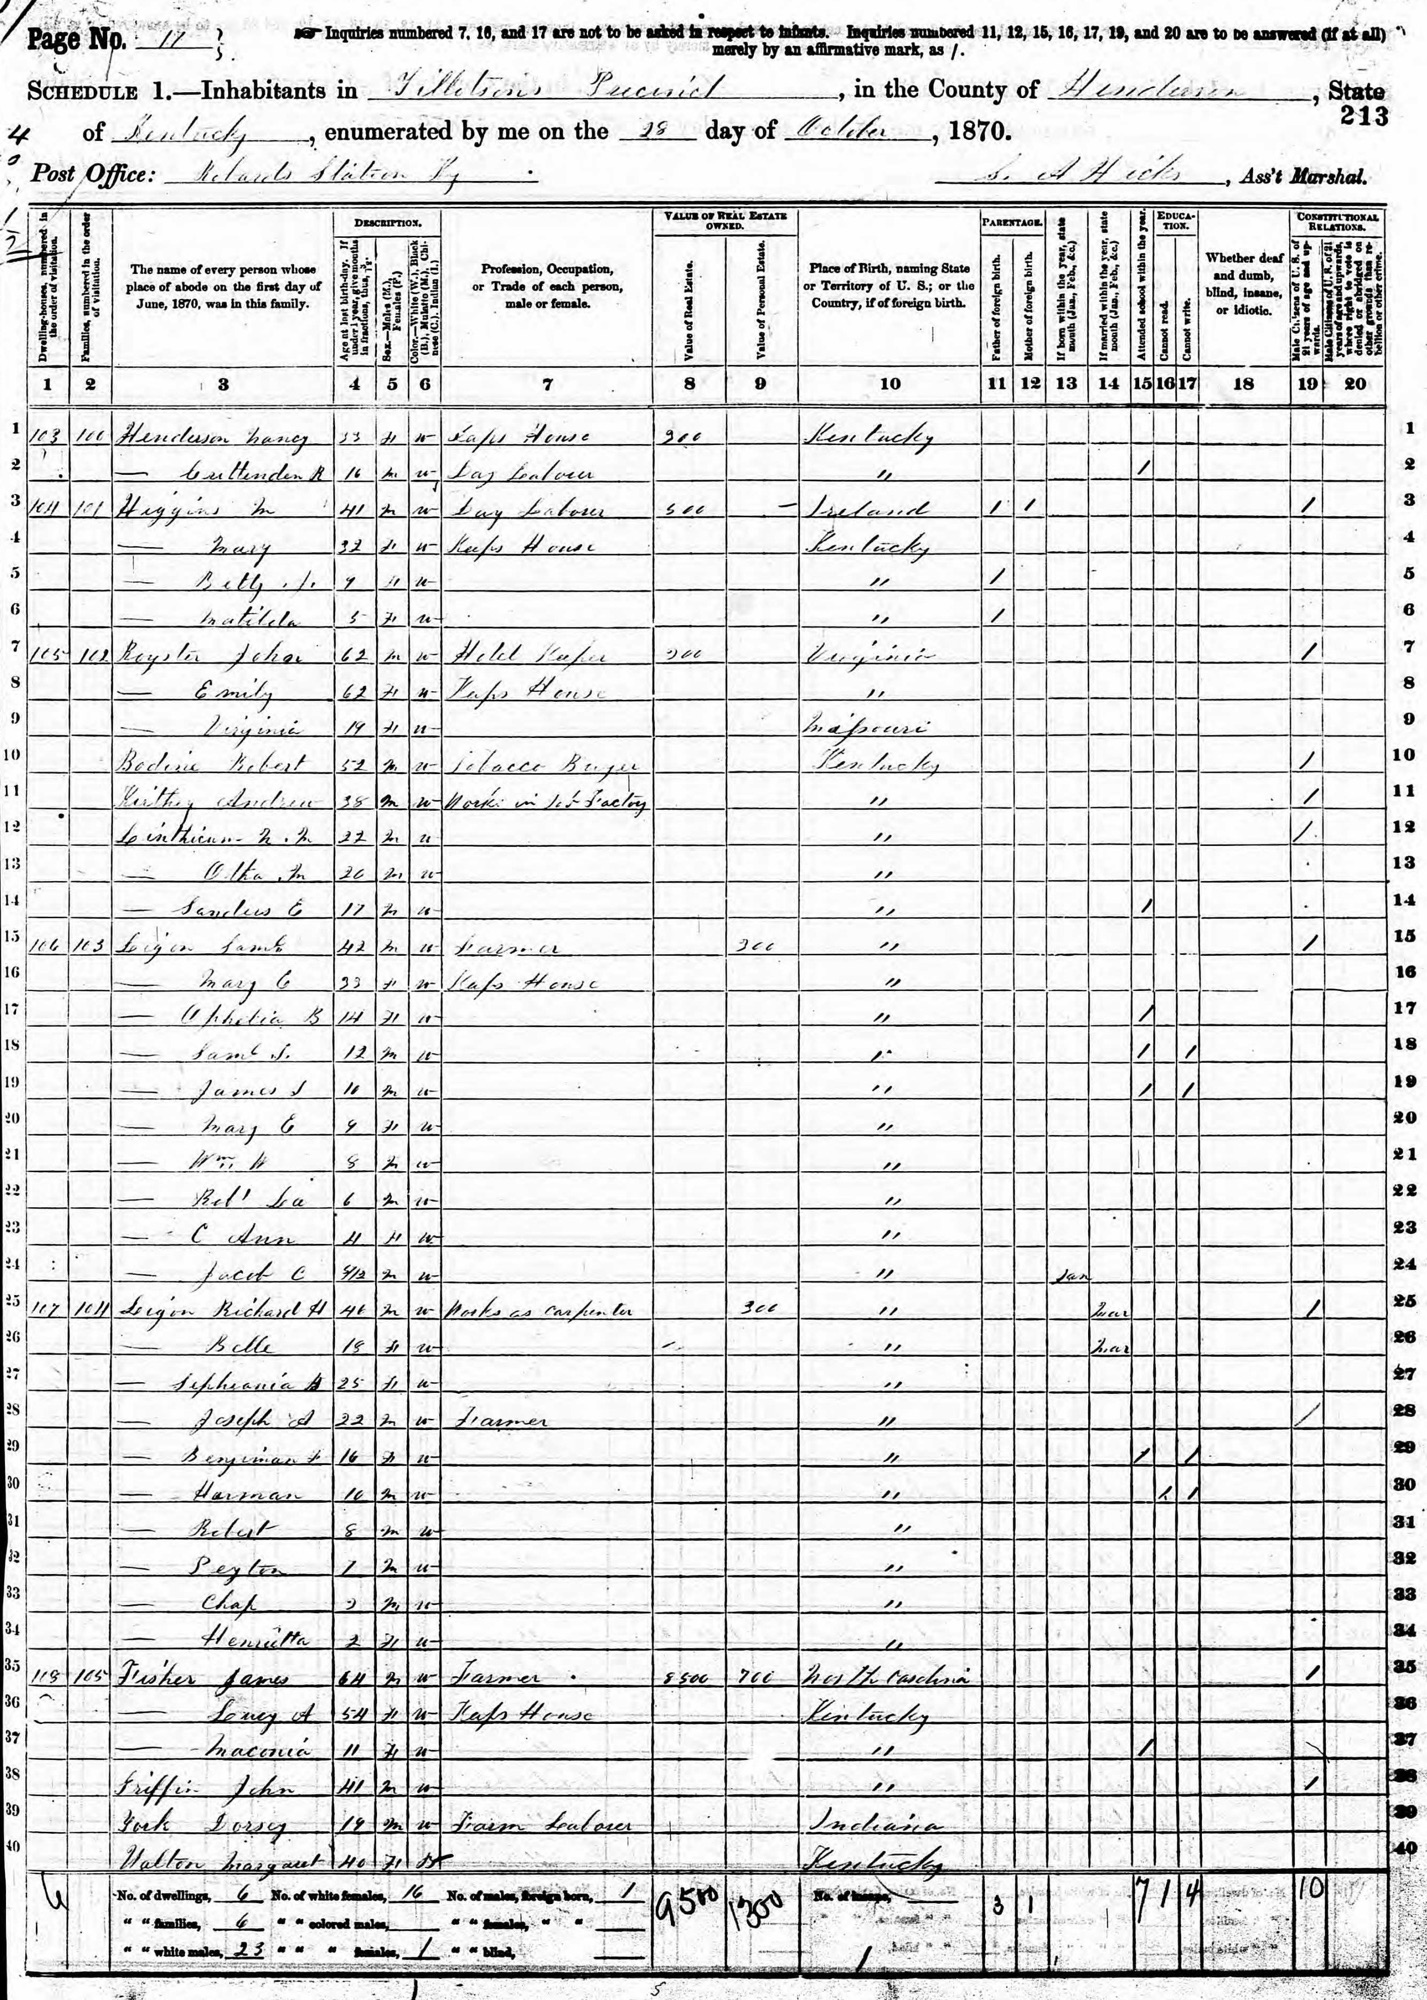 Page No. 17
Inquiries numbered 7, 16, and 17 are not to be asked in respect to infants. Inquiries numbered 11, 12, 15, 16, 17, 19, and 20 are to be answered (if at all)
merely by an affirmative mark, as /.
SCHEDULE 1.—Inhabitants in Tillotsons Precinct, in the County of Henderson, State
213
of Kentucky, enumerated by me on the 28 day of October, 1870.
Post Office: Robards Station Ky
S. A Hicks, Ass't Marshal.
Dwelling-houses, numbered in the order of visitation.
Families, numbered in the order of visitation.
The name of every person whose place of abode on the first day of June, 1870, was in this family.
DESCRIPTION.
Age at last birth-day. If under 1 year, give months in fractions, thus, 3/12.
Sex.—Males (M.), Females (F.)
Color.—White (W.), Black (B.), Mulatto (M.), Chinese (C.), Indian (I.)
Profession, Occupation, or Trade of each person, male or female.
VALUE OF REAL ESTATE OWNED.
Value of Real Estate.
Value of Personal Estate.
Place of Birth, naming State or Territory of U. S.; or the Country, if of foreign birth.
PARENTAGE.
Father of foreign birth.
Mother of foreign birth.
If born within the year, state month (Jan., Feb., &c.)
If married within the year, state month (Jan., Feb., &c.)
Attended school within the year.
EDUCATION.
Cannot read.
Cannot write.
Whether deaf and dumb, blind, insane, or idiotic.
CONSTITUTIONAL RELATIONS.
Male Citizens of U. S. of 21 years of age and upwards.
Male Citizens of U. S. of 21 years of age and upwards, where right to vote is denied or abridged on other grounds than rebellion or other crime.
1 2 3 4 5 6 7 8 9 10 11 12 13 14 15 16 17 18 19 20
1 103 100 Henderson Nancy 33 F W Keeps House Kentucky 1
2 — Crittenden R 16 M W Day Labourer " / 2
3 104 101 Higgins M 41 M W Day Labourer 500 — Ireland / / / 3
4 — Mary 32 F W Keeps House Kentucky 4
5 — Betty F W " / 5
6 — Matilda 5 F W " / 6
7 105 102 Royster John 62 M W Hotel Keeper Virginia / 7
8 — Emily 62 F W Keeps House " 8
9 — Virginia 19 F W Missouri 9
10 Bodine Robert 52 M W Tobacco Buyer Kentucky / 10
11 Andrew 38 M W Works in Tob Factory " / 11
12 Linthicum 22 M W " / 12
13 — Otha M 20 M W " 13
14 — Sanders E 17 M W " / 14
15 106 103 Ligon Saml 42 M W Farmer 300 " / 15
16 — Mary C 33 F W Keeps House " 16
17 — Ophelia B 14 F W " / 17
18 — Saml 12 M W " / / 18
19 — James 10 M W " / / 19
20 — Mary E 9 F W " 20
21 — Wm W 8 M W " 21
22 — Robt Lea 6 M W " 22
23 — C Ann 4 F W " 23
24 — Jacob C M W " Jan 24
25 107 104 Ligon Richard H 46 M W Works as Carpenter 300 " Mar / 25
26 — Belle 18 F W " Mar 26
27 — 25 F W " 27
28 — Joseph A 22 M W Farmer " / 28
29 — Benjiman F 16 F W " / / 29
30 — Harman 10 M W " / / 30
31 — Robert 8 M W " 31
32 — Peyton 7 M W " 32
33 — Chap M W " 33
34 — Henrietta 2 F W " 34
35 108 105 Fisher James 64 M W Farmer 8500 700 North Carolina / 35
36 — Lucy A 54 F W Keeps House Kentucky 36
37 — Maconia 11 F W " / 37
38 Griffin John 41 M W " / 38
39 York Dorsey 19 M W Farm Labourer Indiana 39
40 Walton Margaret 40 F B Kentucky 40
No. of dwellings, 6 No. of white females, 16 No. of males, foreign born, 1 9500 1300 No. of insane, 3 1 7 1 4 10
" " families, 6 " " colored males, " " females, " "
" " white males, 23 " " " females, 1 " " blind,